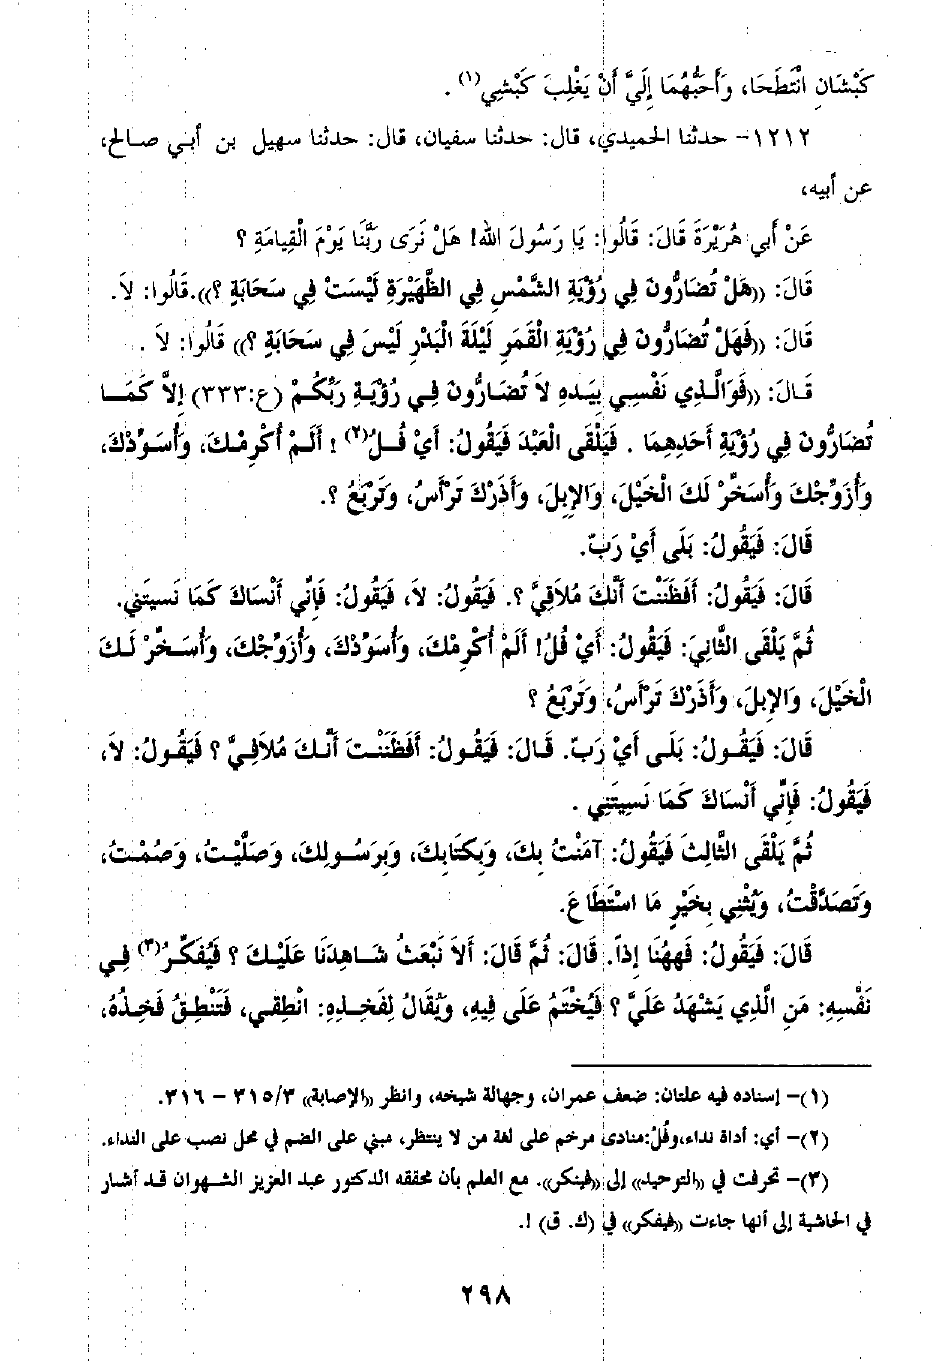 كَبْشَانِ انْتَطَحَا، وَأَحَبُّهُمَا إِلَيَّ أَنْ يَغْلِبَ كَبْشِي(١) .
١٢١٢- حدثنا الحميدي، قال: حدثنا سفيان، قال: حدثنا سهيل بن أبي صالح،
عن أبيه،
عَنْ أَبي هُرَيْرَةَ قَالَ: قَالُوا: يَا رَسُولَ الله! هَلْ نَرَى رَبَّنَا يَوْمَ الْقِيامَةِ ؟
قَالَ: ((هَلْ تُضَارُّونَ فِي رُؤْيَةِ الشَّمْسِ فِي الظَّهِيْرَةِ لَيْسَتْ فِي سَحَابَةٍ ؟)).قَالُوا: لاَ.
قَالَ: ((فَهَلْ تُضَارُّونَ فِي رُؤْيَةِ الْقَمَرِ لَيْلَةَ الْبَدْرِ لَيْسَ فِي سَحَابَةٍ ؟)) قَالُوا: لاَ .
قَالَ: ((فَوَالَّذِي نَفْسِي بِيَدهِ لاَ تُضَارُّونَ فِي رُؤْيَةِ رَبِّكُمْ (ع:٣٣٣) إلاَّ كَمَا
تُضَارُّونَ فِي رُؤْيَةِ أَحَدِهِمَا . فَيَلْقَى الْعَبْدَ فَيَقُولُ: أَيْ فُلُ(٢) ! أَلَمْ أُكْرِمْكَ، وَأُسَوِّدْكَ،
وَأُزَوِّجْكَ وَأُسَخِّرْ لَكَ الْخَيْلَ، وَالإِبِلَ، وَأَذَرْكَ تَرْأَسُ، وَتَرْبَعُ ؟.
قَالَ: فَيَقُولُ: بَلَى أَيْ رَبِّ.
قَالَ: فَيَقُولُ: أَفَظَنَنْتَ أَنَّكَ مُلاَقِيَّ ؟. فَيَقُولُ: لاَ، فَيَقُولُ: فَإِنِّي أَنْسَاكَ كَمَا نَسِيتَنِي.
ثُمَّ يَلْقَى الثَّانِيَ: فَيَقُولُ: أَيْ فُلُ! أَلَمْ أُكْرِمْكَ، وَأُسَوِّدْكَ، وَأُزَوِّجْكَ، وَأُسَخِّرْ لَكَ
الْخَيْلَ، وَالإِبلَ، وَأَذَرْكَ تَرْأَسُ، وَتَرْبَعُ ؟
قَالَ: فَيَقُولُ: بَلَى أَيْ رَبِّ. قَالَ: فَيَقُولُ: أَفَظَنَنْتَ أَنَّكَ مُلاَقِيَّ ؟ فَيَقُولُ: لاَ،
فَيَقُولُ: فَإِنِّي أَنْسَاكَ كَمَا نَسِيتَنِي .
ثُمَّ يَلْقَى الثَّالِثَ فَيَقُولُ: آمَنْتُ بِكَ، وَبِكِتَابِكَ، وَبِرَسُولِكَ، وَصَلَّيْتُ، وَصُمْتُ،
وَتَصَدَّقْتُ، وَيُثْنِي بِخَيْرٍ مَا اسْتَطَاعَ.
قَالَ: فَيَقُولُ: فَههُنَا إِذاً. قَالَ: ثُمَّ قَالَ: أَلاَ نَبْعَثُ شَاهِدَنَا عَلَيْكَ ؟ فَيُفَكِّرُ(٣) فِي
نَفْسِهِ: مَنِ الَّذِي يَشْهَدُ عَلَيَّ ؟ فَيُخْتَمُ عَلَى فِيهِ، وَيُقَالُ لِفَخِذِهِ: انْطِقِي، فَتَنْطِقُ فَخِذُهُ،
(١)- إسناده فيه علتان: ضعف عمران، وجهالة شيخه، وانظر ((الإصابة)) ٣١٥/٣ - ٣١٦.
(٢)- أي: أداة نداء،وفُلُ:منادى مرخم على لغة من لا ينتظر، مبني على الضم في محل نصب على النداء.
(٣)- تحرفت في ((التوحيد)) إلى ((فينكر)). مع العلم بأن محققه الدكتور عبد العزيز الشهوان قد أشار
في الحاشية إلى أنها جاءت ((فيفكر)) في (ك. ق) !.
٢٩٨